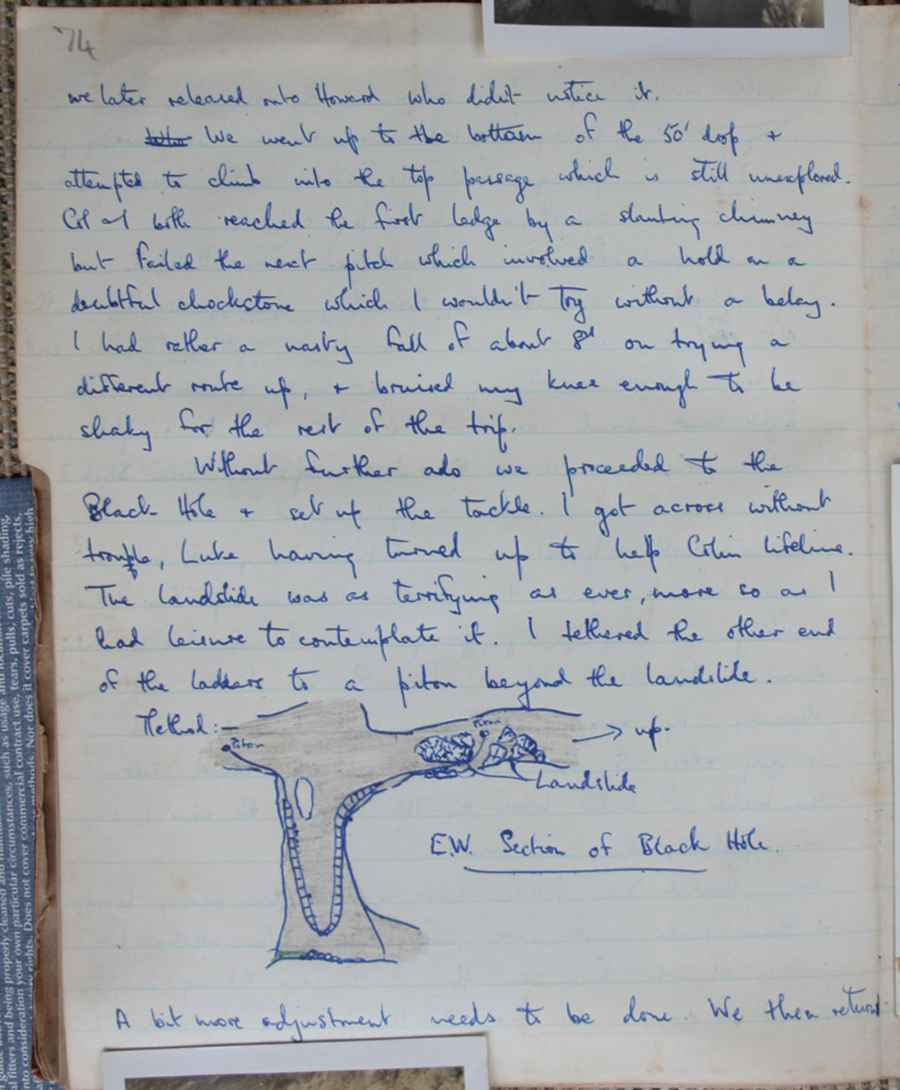 74
we later released onto Howard who didn't notice it.
We went up to the bottom of the 50' drop +
attempted to climb into the top passage which is still unexplored.
Col + I both reached the first ledge by a slanting chimney
but failed the next pitch which involved a hold on a
doubtful chockstone which I wouldn't try without a belay.
I had rather a nasty fall of about 8' on trying a
different route up, + bruised my knee enough to be
shaky for the rest of the trip.
Without further ado we proceeded to the
Black Hole + set up the tackle. I got across without
trouble, Luke having turned up to help Colin lifeline.
The landslide was as terrifying as ever, more so as I
had leisure to contemplate it. I tethered the other end
of the ladders to a piton beyond the landslide.
Method:-
Piton
Piton
up.
Landslide
E.W. Section of Black Hole.
A bit more adjustment needs to be done. We then return
fitters and being properly cleaned and
into consideration your own particular circumstances, such as usage and
Does not cover commercial contract use, tears, pulls, cuts, pile shading,
methods. Nor does it cover carpets sold as rejects,